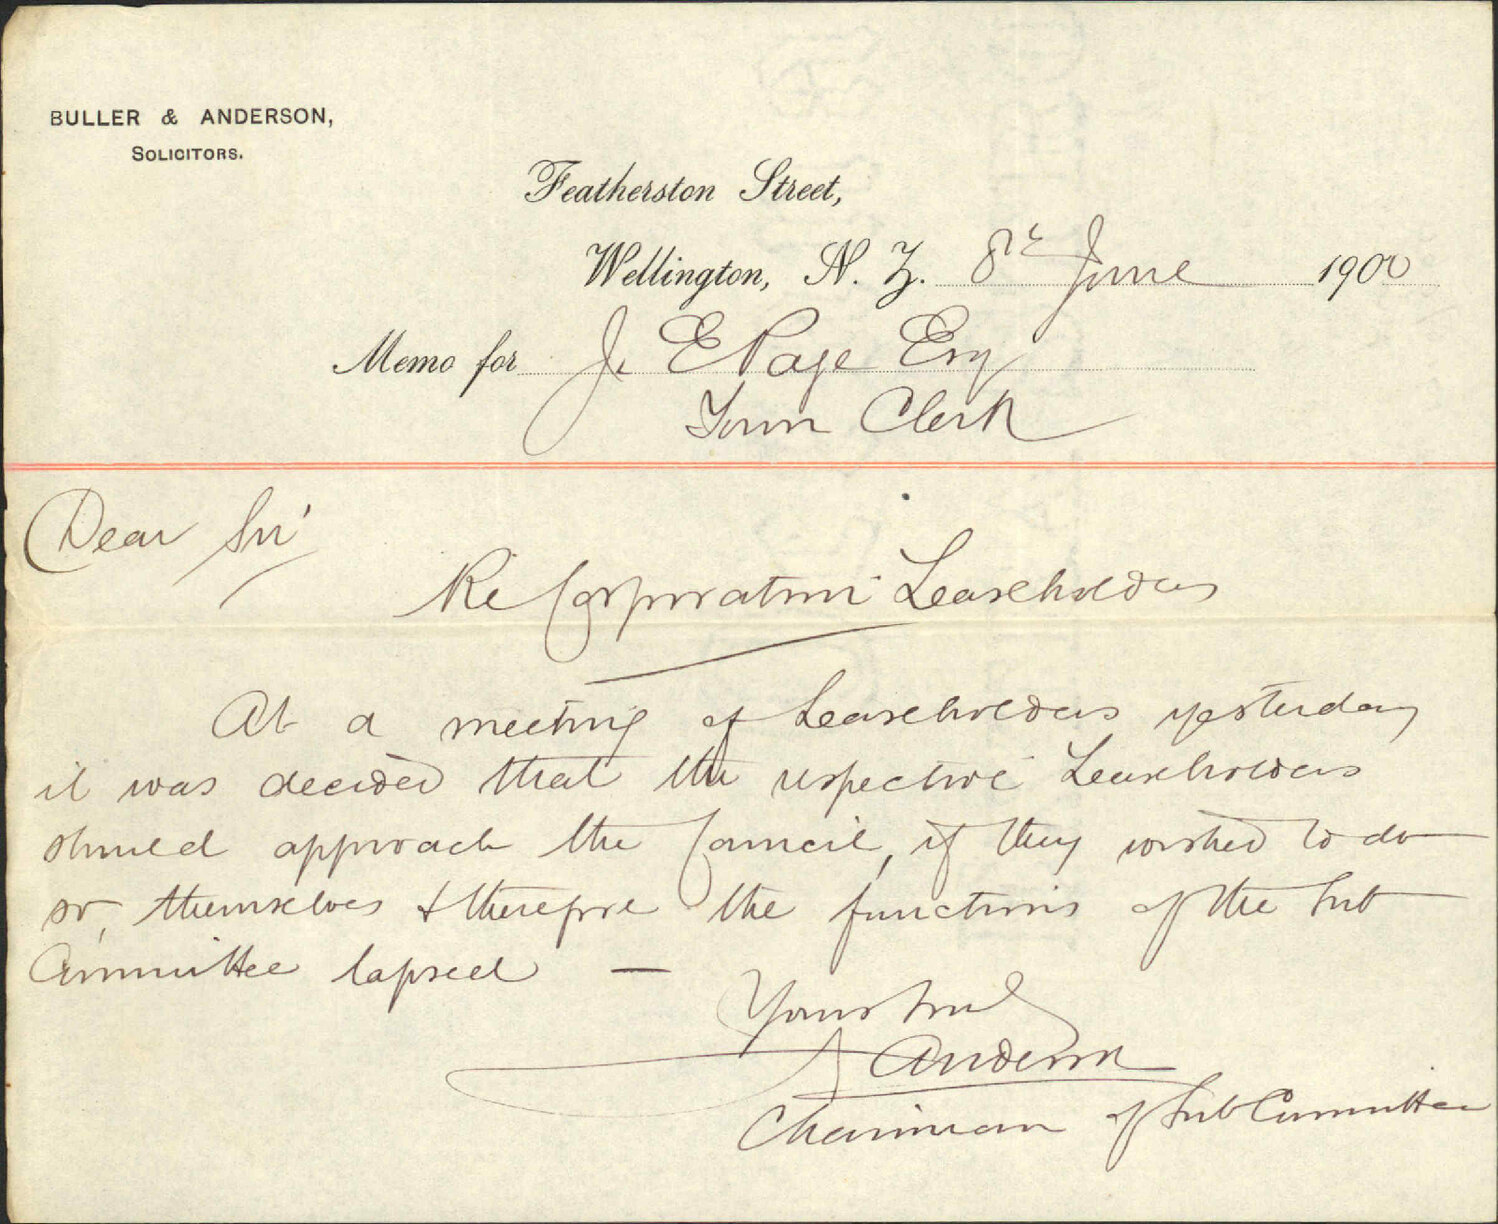 BULLER & ANDERSON,
SOLICITORS.
Featherston Street,
Wellington, N. Z. 8th June 1900
Memo for J. E Page Esq
Town Clerk
Dear Sir
Re Corporation Leaseholders
At a meeting of Leaseholders yesterday
it was decided that the respective Leaseholders
should approach the Council, if they wished to do
so, themselves & therefore the functions of the Sub
Committee lapsed —
Yours truly
Anderson
Chairman of Sub Committee